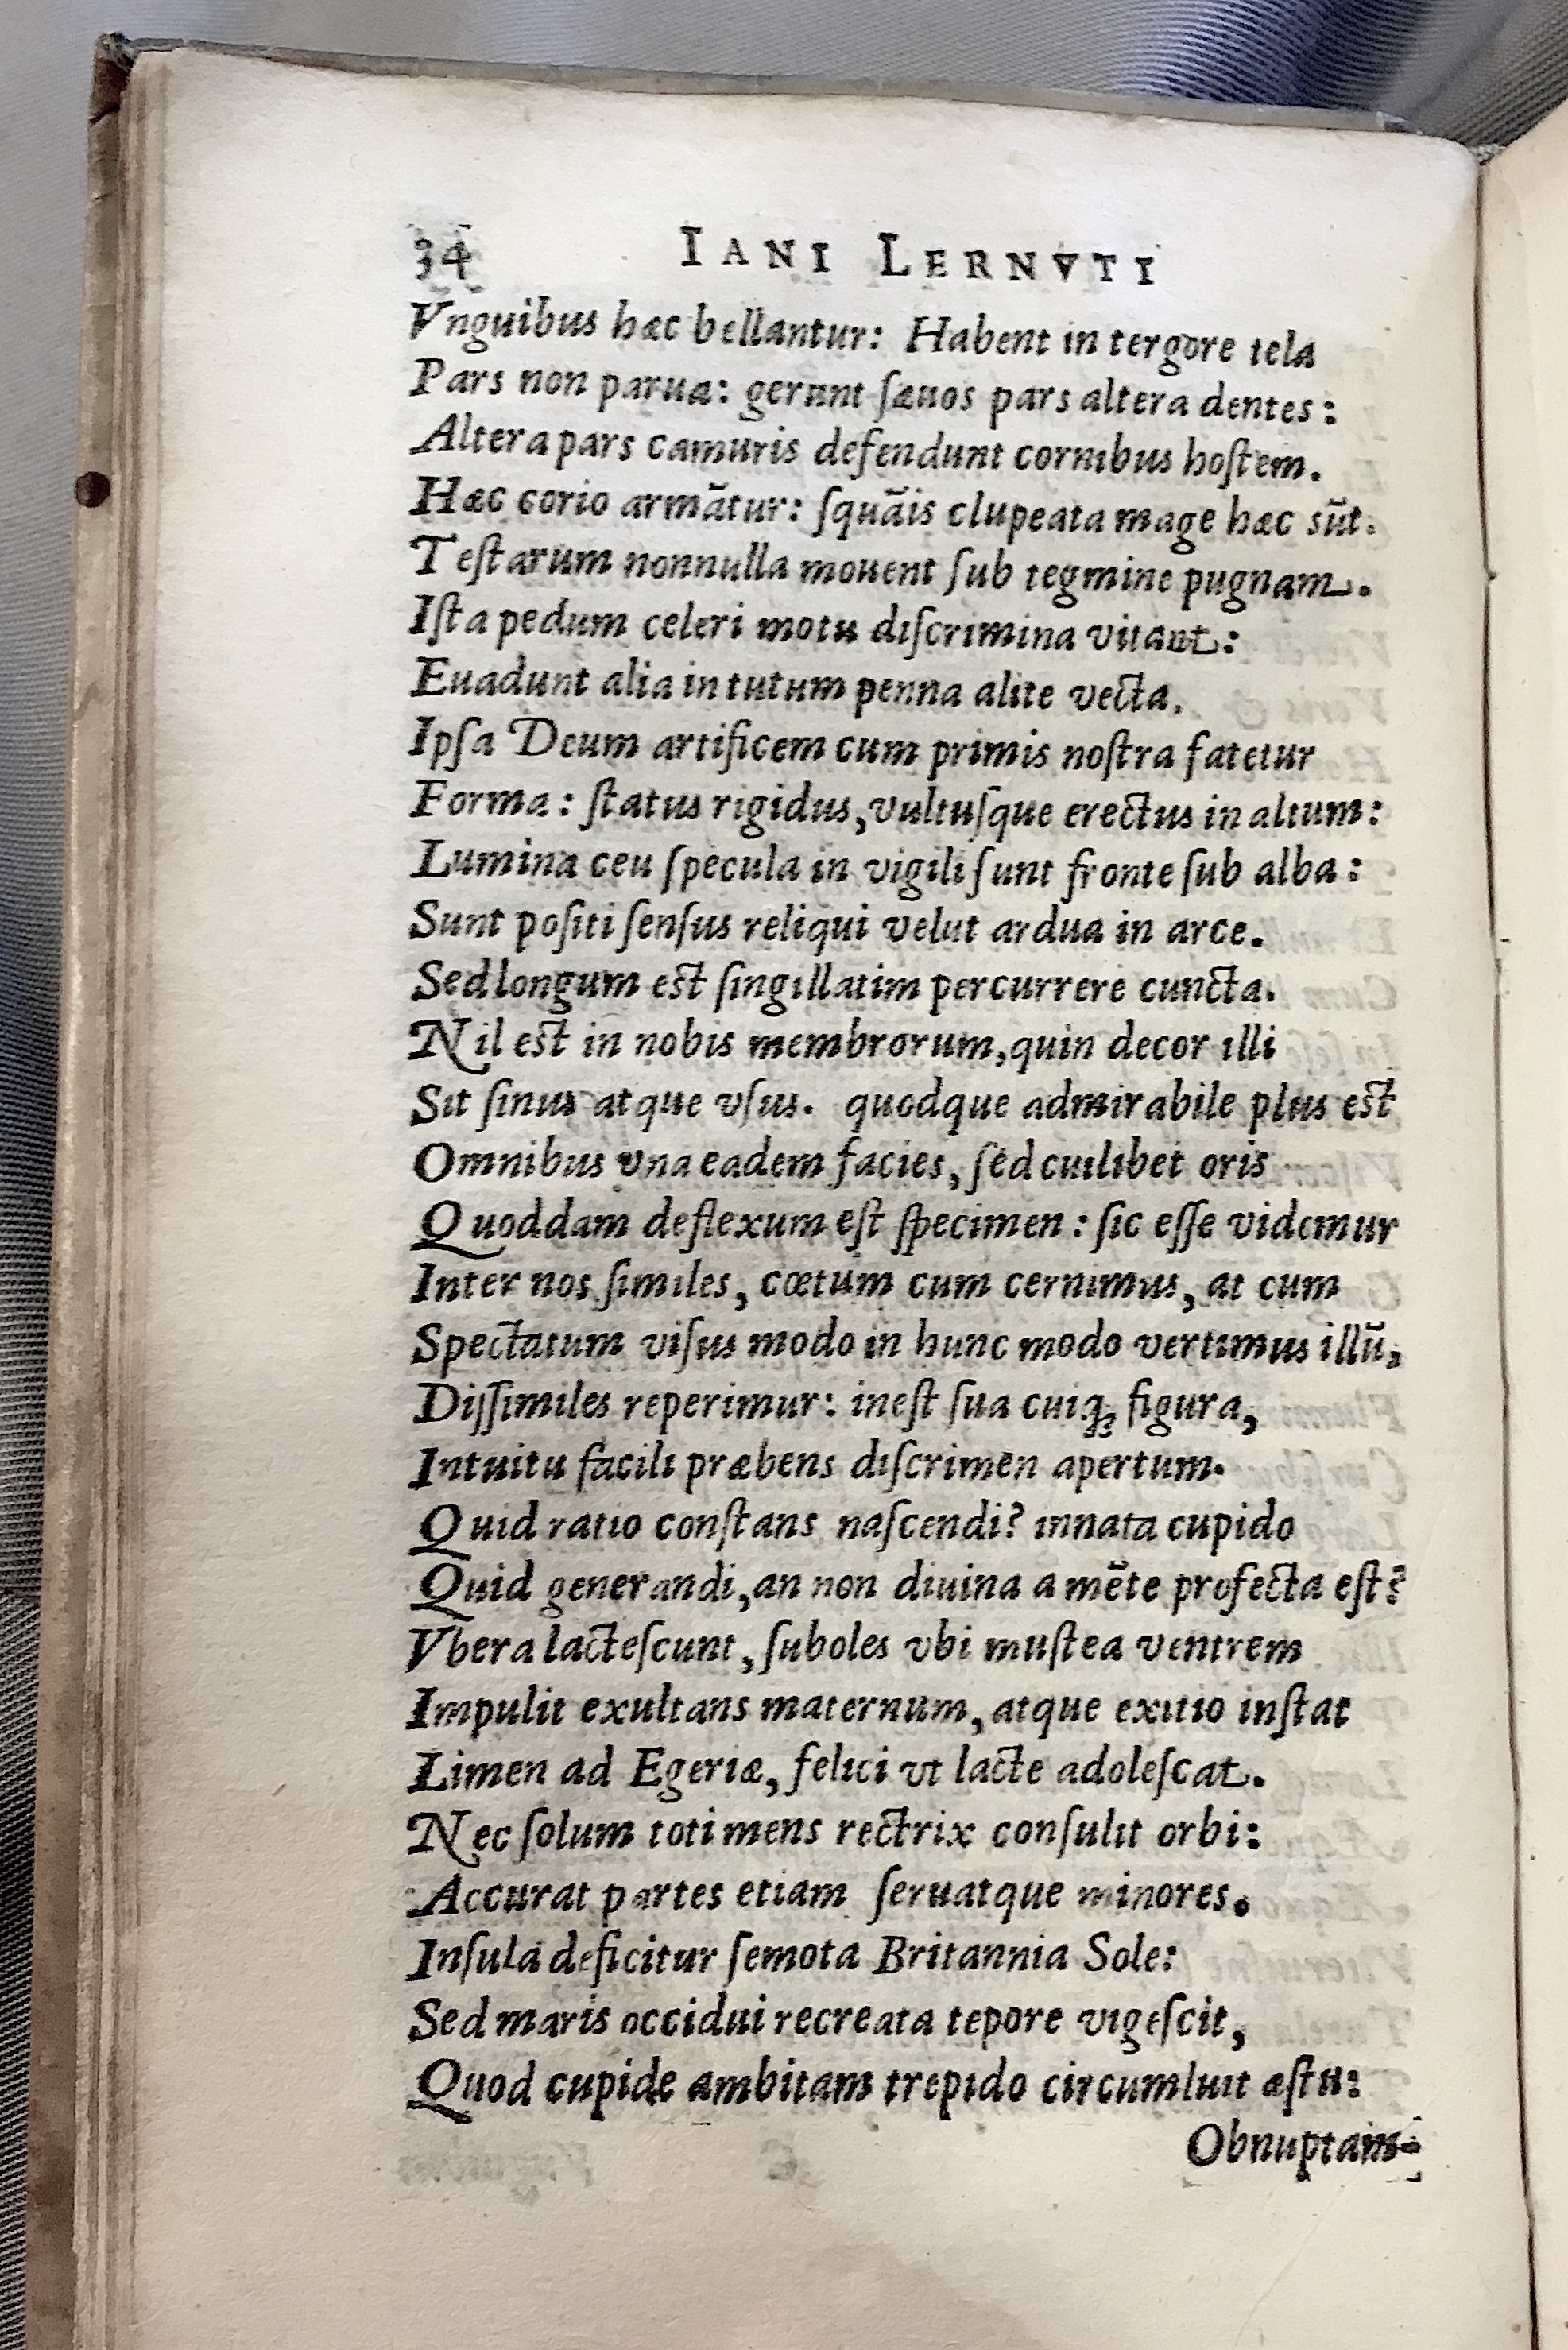 34 IANI LERNVTI
Vnguibus hæc bellantur: Habent in tergore tela
Pars non parua: gerunt ſæuos pars altera dentes:
Altera pars camuris defendunt cornibus hoſtem.
Hæc corio armãtur: ſquãis clupeata mage hæc sũt.
Teſtarum nonnulla mouent ſub tegmine pugnam.
Iſta pedum celeri motu diſcrimina vitant:
Euadunt alia in tutum penna alite vecta.
Ipſa Deum artificem cum primis noſtra fatetur
Forma: ſtatus rigidus, vultuſque erectus in altum:
Lumina ceu ſpecula in vigili ſunt fronte ſub alba:
Sunt poſiti ſenſus reliqui velut ardua in arce.
Sed longum est ſingillatim percurrere cuncta.
Nil est in nobis membrorum, quin decor illi
Sit ſinus atque vſus. quodque admirabile plus est
Omnibus vna eadem facies, ſed cuilibet oris
Quoddam deflexum eſt ſpecimen: ſic eſſe videmur
Inter nos ſimiles, cœtum cum cernimus, at cum
Spectatum viſus modo in hunc modo vertimus illũ,
Diſſimiles reperimur: ineſt ſua cuiqꝫ figura,
Intuitu facili præbens diſcrimen apertum.
Quid ratio conſtans naſcendi? innata cupido
Quid generandi, an non diuina a mẽte profecta eſt?
Vbera lacteſcunt, ſuboles vbi muſtea ventrem
Impulit exultans maternum, atque exitio inſtat
Limen ad Egeriæ, felici vt lacte adoleſcat.
Nec ſolum toti mens rectrix conſulit orbi:
Accurat partes etiam ſeruatque minores.
Inſula deficitur ſemota Britannia Sole:
Sed maris occidui recreata tepore vigeſcit,
Quod cupide ambitam trepido circumluit æſtu:
Obnuptam-